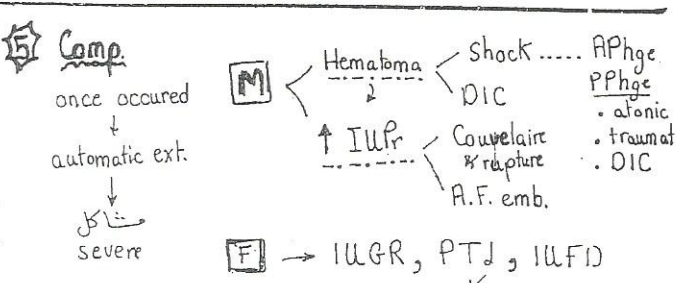 5 Comp.
once occured
↓
automatic ext.
↓
مشاكل
severe
M
Hematoma
↓
↑ IUPr
Shock ..... APhge
DIC
PPhge
. atonic
. traumat
. DIC
Couvelaire
& rupture
A.F. emb.
F → IUGR, PTL, IUFD